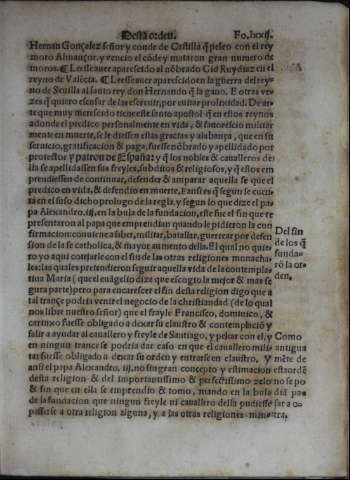 Desta orden. Fo.lxxij.
Hernan Gonçalez señor y conde de Castilla q̃ peleo con el rey
moro Almançor, y vencio el cõde y mataron gran numero de
moros. ¶ Leesse auer aparescido al nõbrado Cid Ruydiaz en el
reyno de Valẽcia. ¶ Leesse auer aparescido en la guerra del rey-
no de Seuilla al santo rey don Hernando q̃ la gano. E otras ve-
zes q̃ quiero escusar de las escreuir, por euitar prolixidad. De ar-
te que muy merescido tiene este santo apostol q̃ en estos reynos
adonde el predico personalmente en vida, & fauorescio militar
mente en muerte, se le diessen estas gracias y alabança, que en su
seruicio, gratificacion & paga, fuesse nõbrado y apellidado por
protector y patron de España: y q̃ los nobles & caualleros de-
lla se apellidassen sus freyles, subditos & religiosos, y q̃ estos em
prendiessen de continuar, defender & amparar aquella se que el
predico en vida, & defendio en muerte, E ansi es q̃ segun se cuen-
ta en el suso dicho prologo de la regla, y segun lo que dize el pa
pa Alexandro. iij, en la bula de la fundacion, este fue el fin que re
presentaron al papa que emprendian quando le pidieron la con
firmacion: conuiene a saber, militar, batallar, guerrear por defen
sion de la fe catholica, & mayor aumento della. El qual no quie-
ro yo aqui conjarle con el fin de las otras religiones monacha-
les: las quales pretendieron seguir aquella vida de la contempla
tiua Maria ( que el euãgelio dize que escogio la mejor & mas se
gura parte) pero para encarescer el fin desta religion digo que a
tal trançe podria venir el negocio de la christiandad (de lo qual
nos libre nuestro señor) que el frayle Francisco, dominico, &
cartuxo fuesse obligado a dexar su claustro & contemplaciõ y
salir a ayudar al cauallero y freyle de Santiago, y pelear con el, y
en ningun trance se podria dar caso en que el cauallero mili-
tar fuesse obligado a dexar su orden y entrarse en claustro. Y
ansi el papa Alexandro, iij. no sin gran concepto y estimacion
desta religion & del importantissimo & perfectissimo zelo
& fin que en ella se emprendio & tomo, mando en la bula
de la fundacion que ningun freyle ni cauallero della pudiesse
passarse a otra religion alguna, y a las otras religiones man-
Del fin
de los q̃
funda-
rõ la or-
den.
Como
antigua
mẽte de
esta ordẽ
no se po
dia pas
sar a o-
tra.